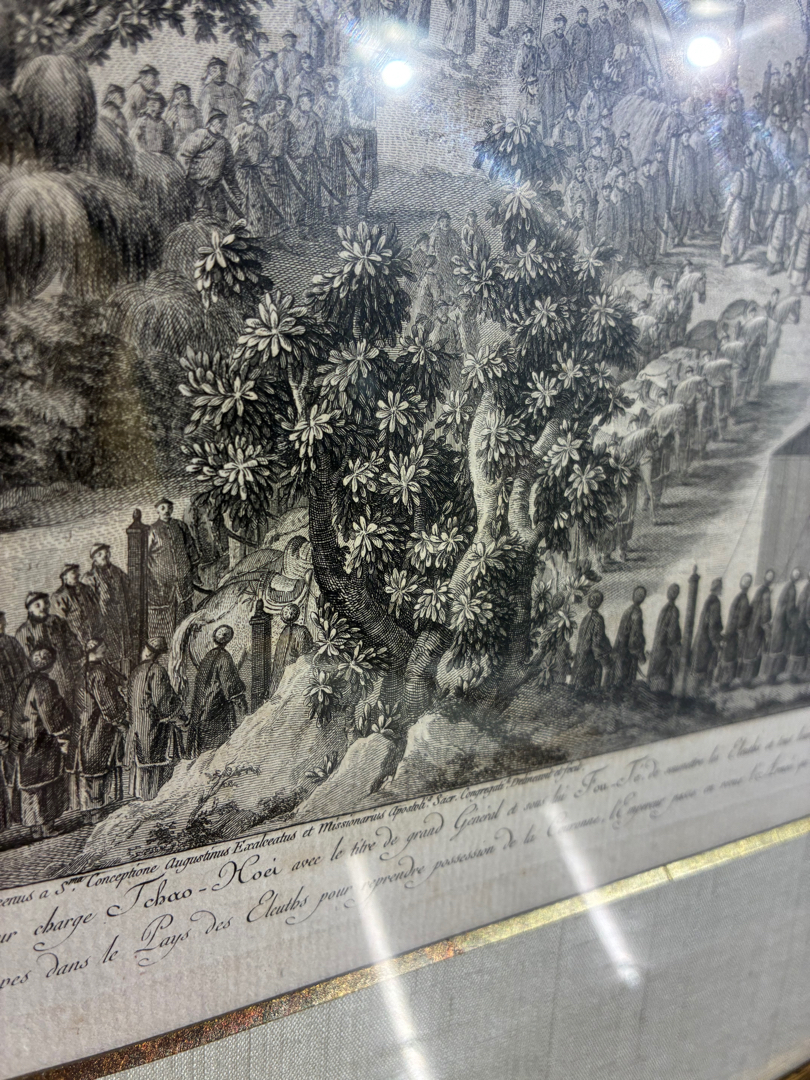 enus a S.ma Conceptione Augustinus Exalceatus et Missionarius Apostoli.s Sacr. Congregati.s Delineavit et fecit
ur charge Tchao-Hoei avec le titre de grand Général et sous lui Fou-Té, de soumettre les Eleuths
ves dans le Pays des Eleuths pour reprendre possession de la l'Empereur passe en revue l'Armée